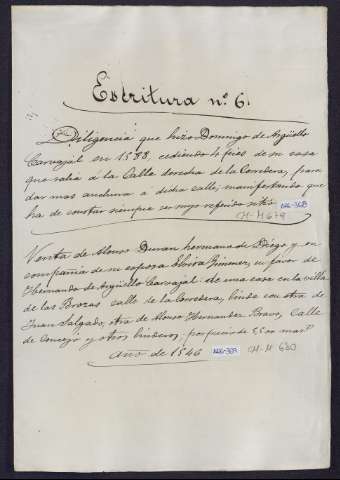 Escritura nº 6.
Diligencia que hizo Domingo de Argüello
Carvajal en 1588, cediendo 4 pies de su casa
que salia á la Calle derecha de la Corredera, para
dar mas anchura á dicha calle; manifestando que
ha de constar siempre ser suyo referido sitio
CH-M 679
Venta de Alonso Duran hermano de Diego y en
compañia de su esposa Elvira Jimenez, en favor de
Hernando de Argüello Carvajal de una casa en la villa
de las Brozas calle de la Corredera, linde con otra de
Juan Salgado, otra de Alonso Hernandez Bravo, Calle
de Concejo y otros linderos; por precio de
año de 1546 CH-M 680